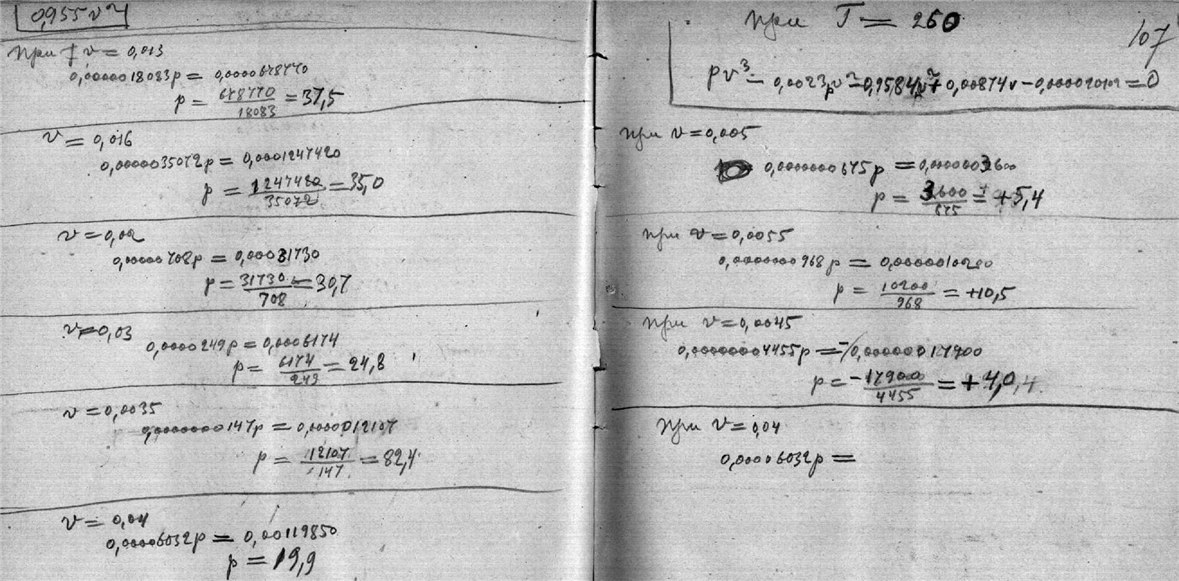 0,955v²
при v = 0,013
0,0000018083p = 0,0000678770
p = 678770/18083 = 37,5
v = 0,016
0,0000035072p = 0,0001247420
p = 1247420/35072 = 35,0
v = 0,02
0,00000708p = 0,00031730
p = 31730/708 = 30,7
v = 0,03
0,0000249p = 0,0006174
p = 6174/249 = 24,8
v = 0,0035
0,0000000147p = 0,0000012107
p = 12107/147 = 82,4
v = 0,04
0,00006032p = 0,00119850
p = 19,9
при T = 260
107
pv³ – 0,0023pv² – 0,9584v² + 0,00874v – = 0
при v = 0,005
0,0000000675p = 0,0000003600
p = 3600/675 = +5,4
при v = 0,0055
0,0000000968p = 0,0000010200
p = 10200/968 = +10,5
при v = 0,0045
0,00000004455p = – 0,00000017900
p = – 17900/4455 = + 4,0
при v = 0,04
0,00006032p =